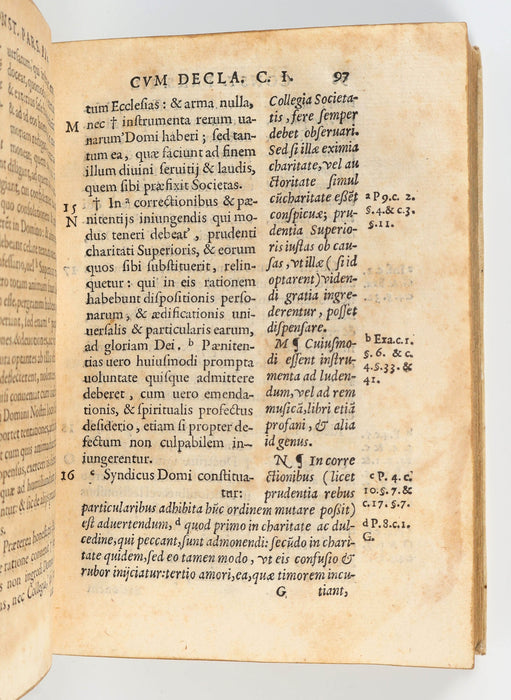 CVM DECLA. C. I. 97
tum Ecclesias: & arma nulla,
M nec † instrumenta rerum ua-
narum Domi haberi; sed tan-
tum ea, quæ faciunt ad finem
illum diuini seruitij & laudis,
quem sibi præfixit Societas.
15 † In ª correctionibus & pæ-
N nitentijs iniungendis qui mo-
dus teneri debeat, prudenti
charitati Superioris, & eorum
quos sibi substituerit, relin-
quetur: qui in eis rationem
habebunt dispositionis perso-
narum, & ædificationis uni-
uersalis & particularis earum,
ad gloriam Dei. ᵇ Pæniten-
tias uero huiusmodi prompta
uoluntate quisque admittere
deberet, cum uero emenda-
tionis, & spiritualis profectus
desiderio, etiam si propter de-
fectum non culpabilem in-
iungerentur.
16 ᶜ Syndicus Domi constitua-
tur:
Collegia Societa-
tis, fere semper
debet obseruari.
Sed si illæ eximia
charitate, vel au
ctoritate simul
cũ charitate eßẽt
conspicuæ; pru-
dentia Superio-
ris iustas ob cau-
sas, vt illæ (si id
optarent) viden-
di gratia ingre-
derentur, posset
dispensare.
M ¶ Cuiusmo-
di essent instru-
menta ad luden-
dum, vel ad rem
musicã, libri etiã
profani, & alia
id genus.
N ¶ In corre
ctionibus (licet
prudentia rebus
particularibus adhibita hũc ordinem mutare poßit)
est aduertendum, ᵈ quod primo in charitate ac dul-
cedine, qui peccant, sunt admonendi: secũdo in chari-
tate quidem, sed eo tamen modo, vt eis confusio &
rubor inijciatur: tertio amori, ea, quæ timorem incu-
G tiant,
a P 9. c. 2.
§. 4. & c. 3.
§. 11.
b Exa. c. 1.
§. 6. & c.
4. §. 33. &
41.
c P. 4. c.
10. §. 7. &
c. 17. §. 7.
d P. 8. c. 1.
G.